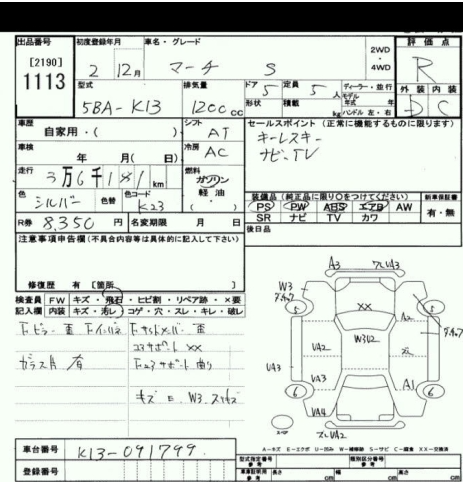 出品番号 初度登録年月 車名・グレード 評価点
[2190] 2WD
1113 2 12月 マーチ S ・4WD R
型式 排気量 ドア 定員 ディーラー・並行 外装 内装
5BA-K13 1200cc 5 5人 モデル年式 年 D C
形状 積載 kg ハンドル 左・右
車歴 シフト セールスポイント (正常に機能するものに限ります)
自家用・( ) AT キーレスキー
車検 冷房 ナビ、TV
年 月( 日) AC
走行 燃料
3万6千181km ガソリン
色 色替 色コード 軽油
シルバー K23 ・( )
装備品 (純正品に限り○をつけてください) 新車保証書
PS PW ABS エアB AW 有・無
SR ナビ TV カワ
R券 8,350円 名変期限 月 日 後日品
注意事項申告欄(不具合内容等は具体的に記入して下さい)
修復歴 有 [箇所 ]
検査員 FW キズ・飛石・ヒビ割・リペア跡・×要
記入欄 内装 キズ・汚レ・コゲ・穴・スレ・キレ・破レ
ガラス片 有
キズ E W3
A3
W3
5 5
XX
A2
UA2 W3U2
UA3
UA3
A1
6 6
UA4
UA2
スペア
車台番号 K13-091799
登録番号
A-キズ E-エクボ U-凹み W-補修跡 S-サビ C-腐食 XX-交換済
型式指定番号 類別区分番号
参考 参考
車庫証明用 長さ 幅 高さ
参考 cm cm cm